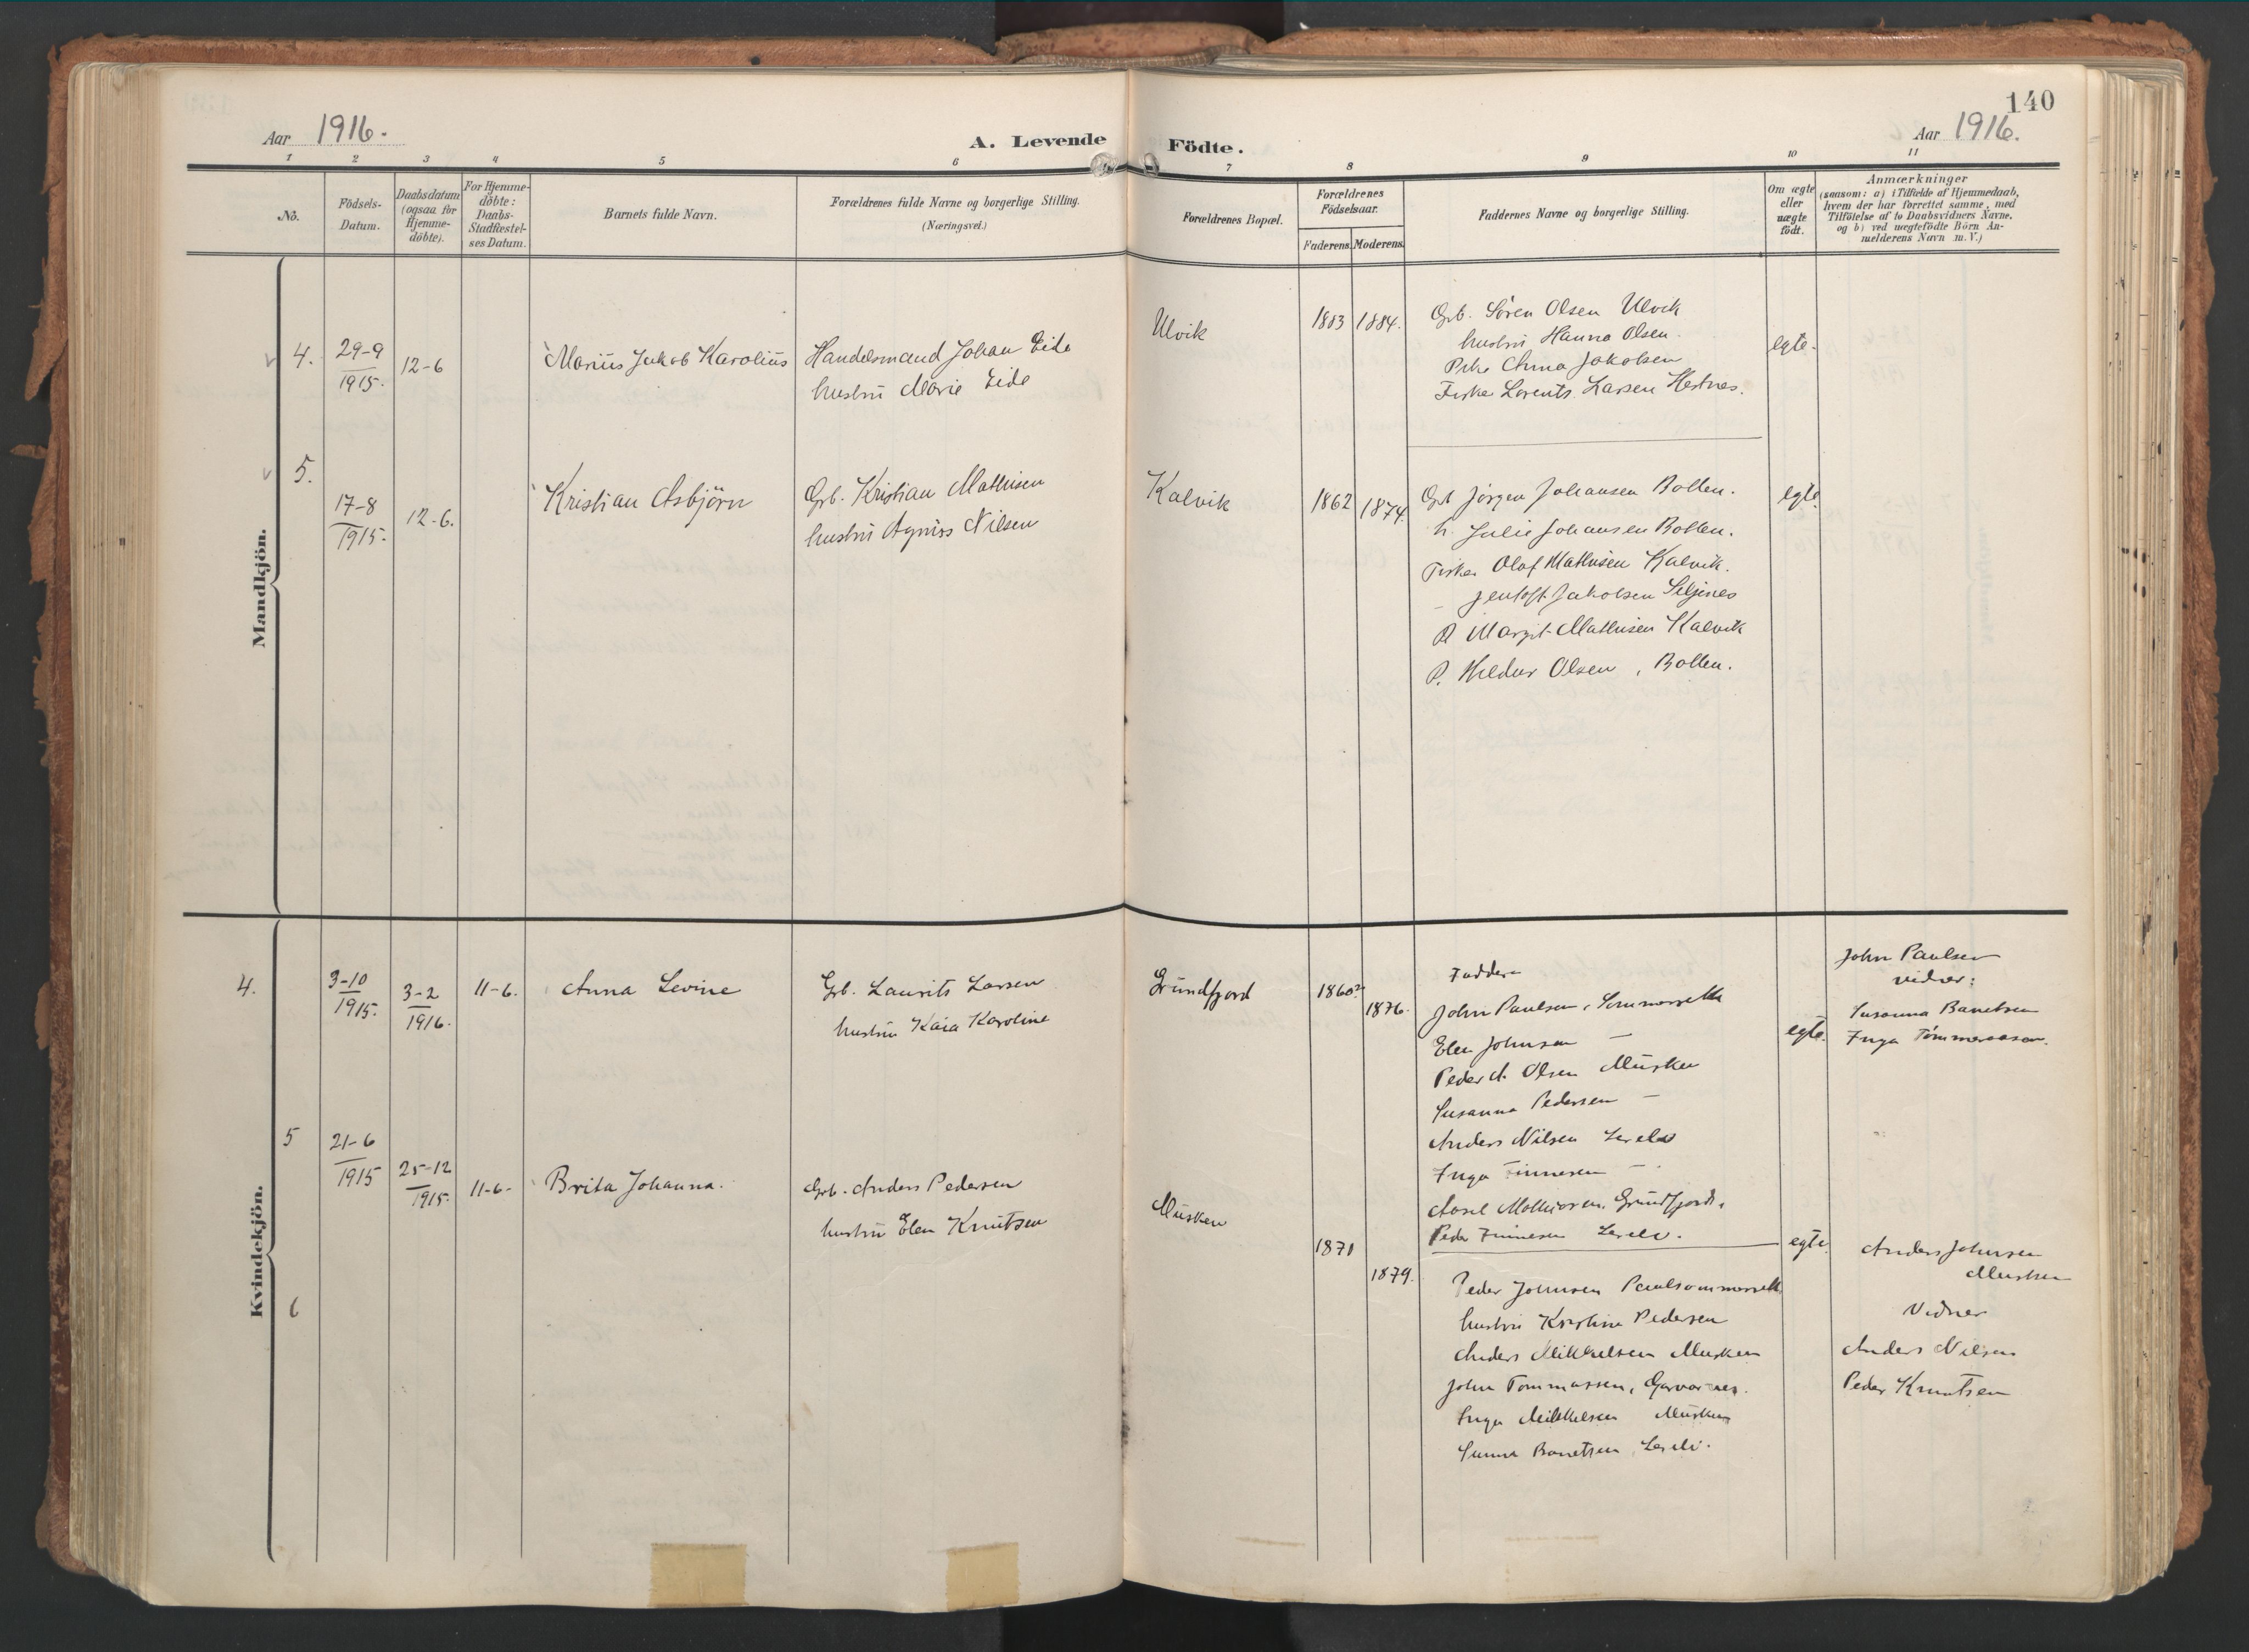 140
Aar 1916.
A. Levende Födte.
Aar 1916.
1 2 3 4 5 6 7 8 9 10 11
Nö.
Födsels-
Datum.
Daabsdatum
(ogsaa for
Hjemme-
döbte).
For Hjemme-
döbte:
Daabs-
Stadfæstel-
ses Datum.
Barnets fulde Navn.
Forældrenes fulde Navne og borgerlige Stilling.
(Næringsvei.)
Forældrenes Bopæl.
Forældrenes
Födselsaar.
Faderens. Moderens.
Faddernes Navne og borgerlige Stilling.
Om ægte
eller
uægte
födt.
Anmærkninger
(saasom: a) i Tilfælde af Hjemmedaab,
hvem der har forrettet samme, med
Tilföielse af to Daabsvidners Navne.
og b) ved uægtefödte Börn An-
melderens Navn m. V.)
Mandkjön.
4.
29-9
1915.
12-6
Marius Jakob Karolius
Handelsmand Johan Eide
hustru Marie Eide
Ulvik
1883 1884.
Grb. Sören Olsen Ulvik
hustru Hanna Olsen.
Pike Anna Jakobsen
Fisker Lorents Larsen Hestnes.
egte.
5.
17-8
1915.
12-6.
Kristian Asbjörn
Grb. Kristian Mathisen
hustru Agnes Nilsen
Kalvik
1862 1874.
Grb Jörgen Johansen Botten.
h. Julie Johansen Botten.
Fisker Olaf Mathisen Kalvik.
- Jentoft Jakobsen Siljenes
P. Margit Mathisen Kalvik
P. Hildur Olsen, Botten.
egte.
Kvindekjön.
4.
3-10
1915.
3-2
1916.
11-6.
Anna Levine
Grb. Laurits Larsen
hustru Kaia Karoline
Grundfjord
1860?
1876.
Faddere
John Paulsen, Sommersett
Elen Johnsen -
Peder A. Olsen Musken
Susanna Pedersen -
Anders Nilsen
Inga Finnesen -
Mathisen, Grundfjord,
Peder Finnesen
egte.
John Paulsen
vidner:
Susanna Banetsen
Inga
5
21-6
1915
25-12
1915.
11-6-
Brita Johanna.
Grb. Anders Pedersen
hustru Elen Knutsen
Musken
1871
1879.
Peder Johnsen
hustru Kristine Pedersen
Anders Mikkelsen Musken
John Tommassen,
Inga Mikkelsen Musken
Banetsen
egte.
Anders Johnsen
Musken
Vidner
Anders Nilsen
Peder Knutsen
6